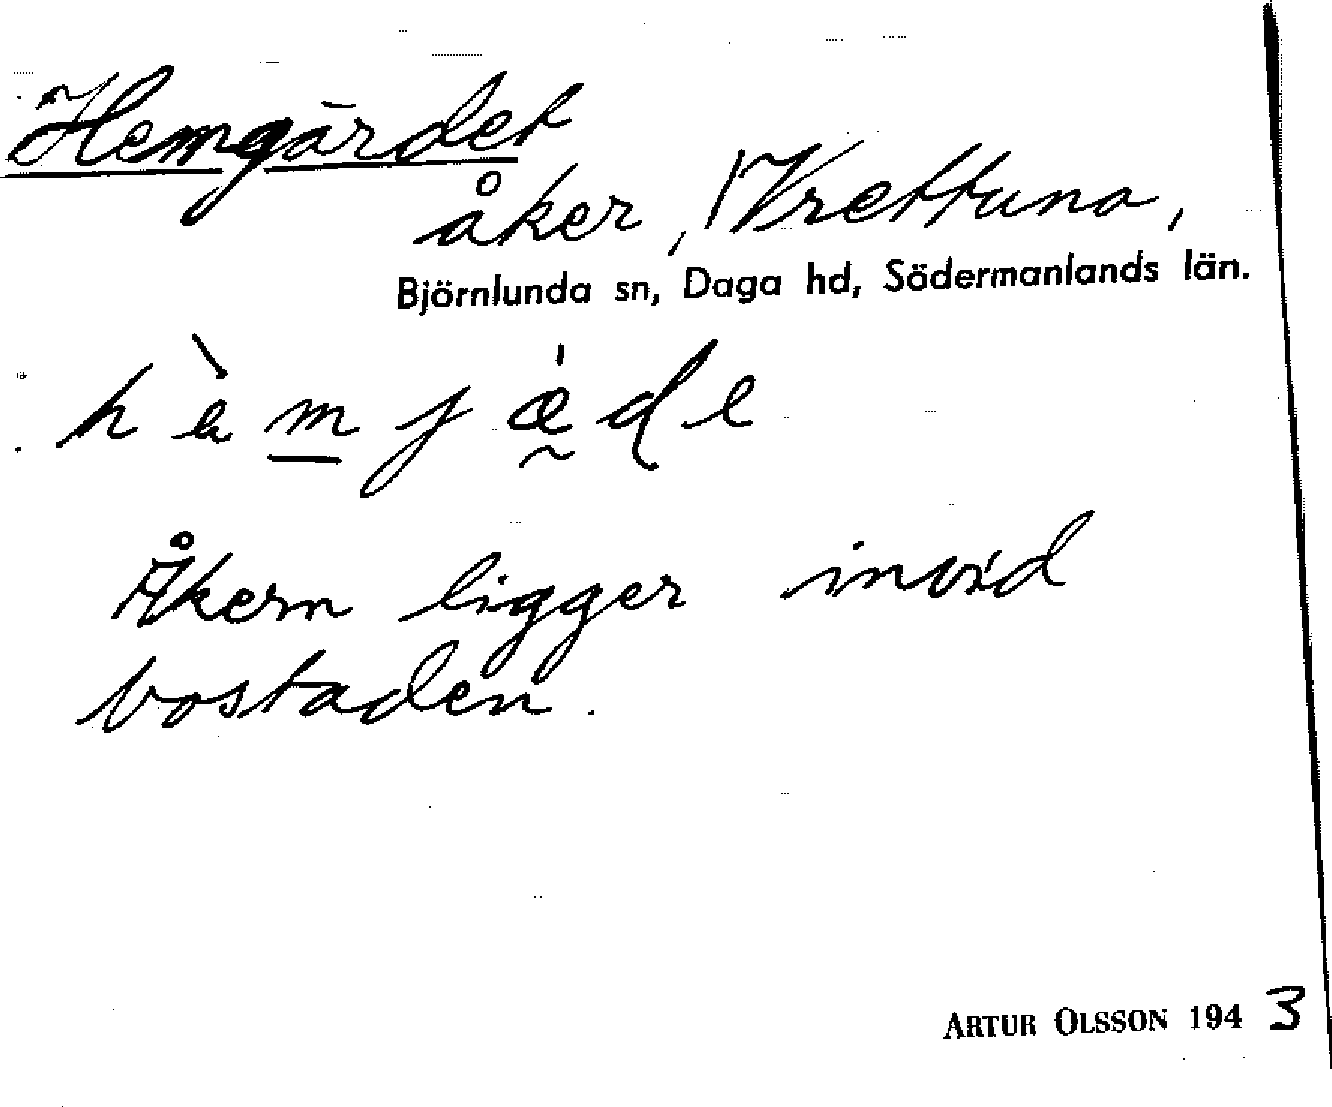 Hemgärdet
åker, Vrettuna,
Björnlunda sn, Daga hd, Södermanlands län.
hèmjǽ̰de
Åkern ligger invid
bostaden.
ARTUR OLSSON 1943